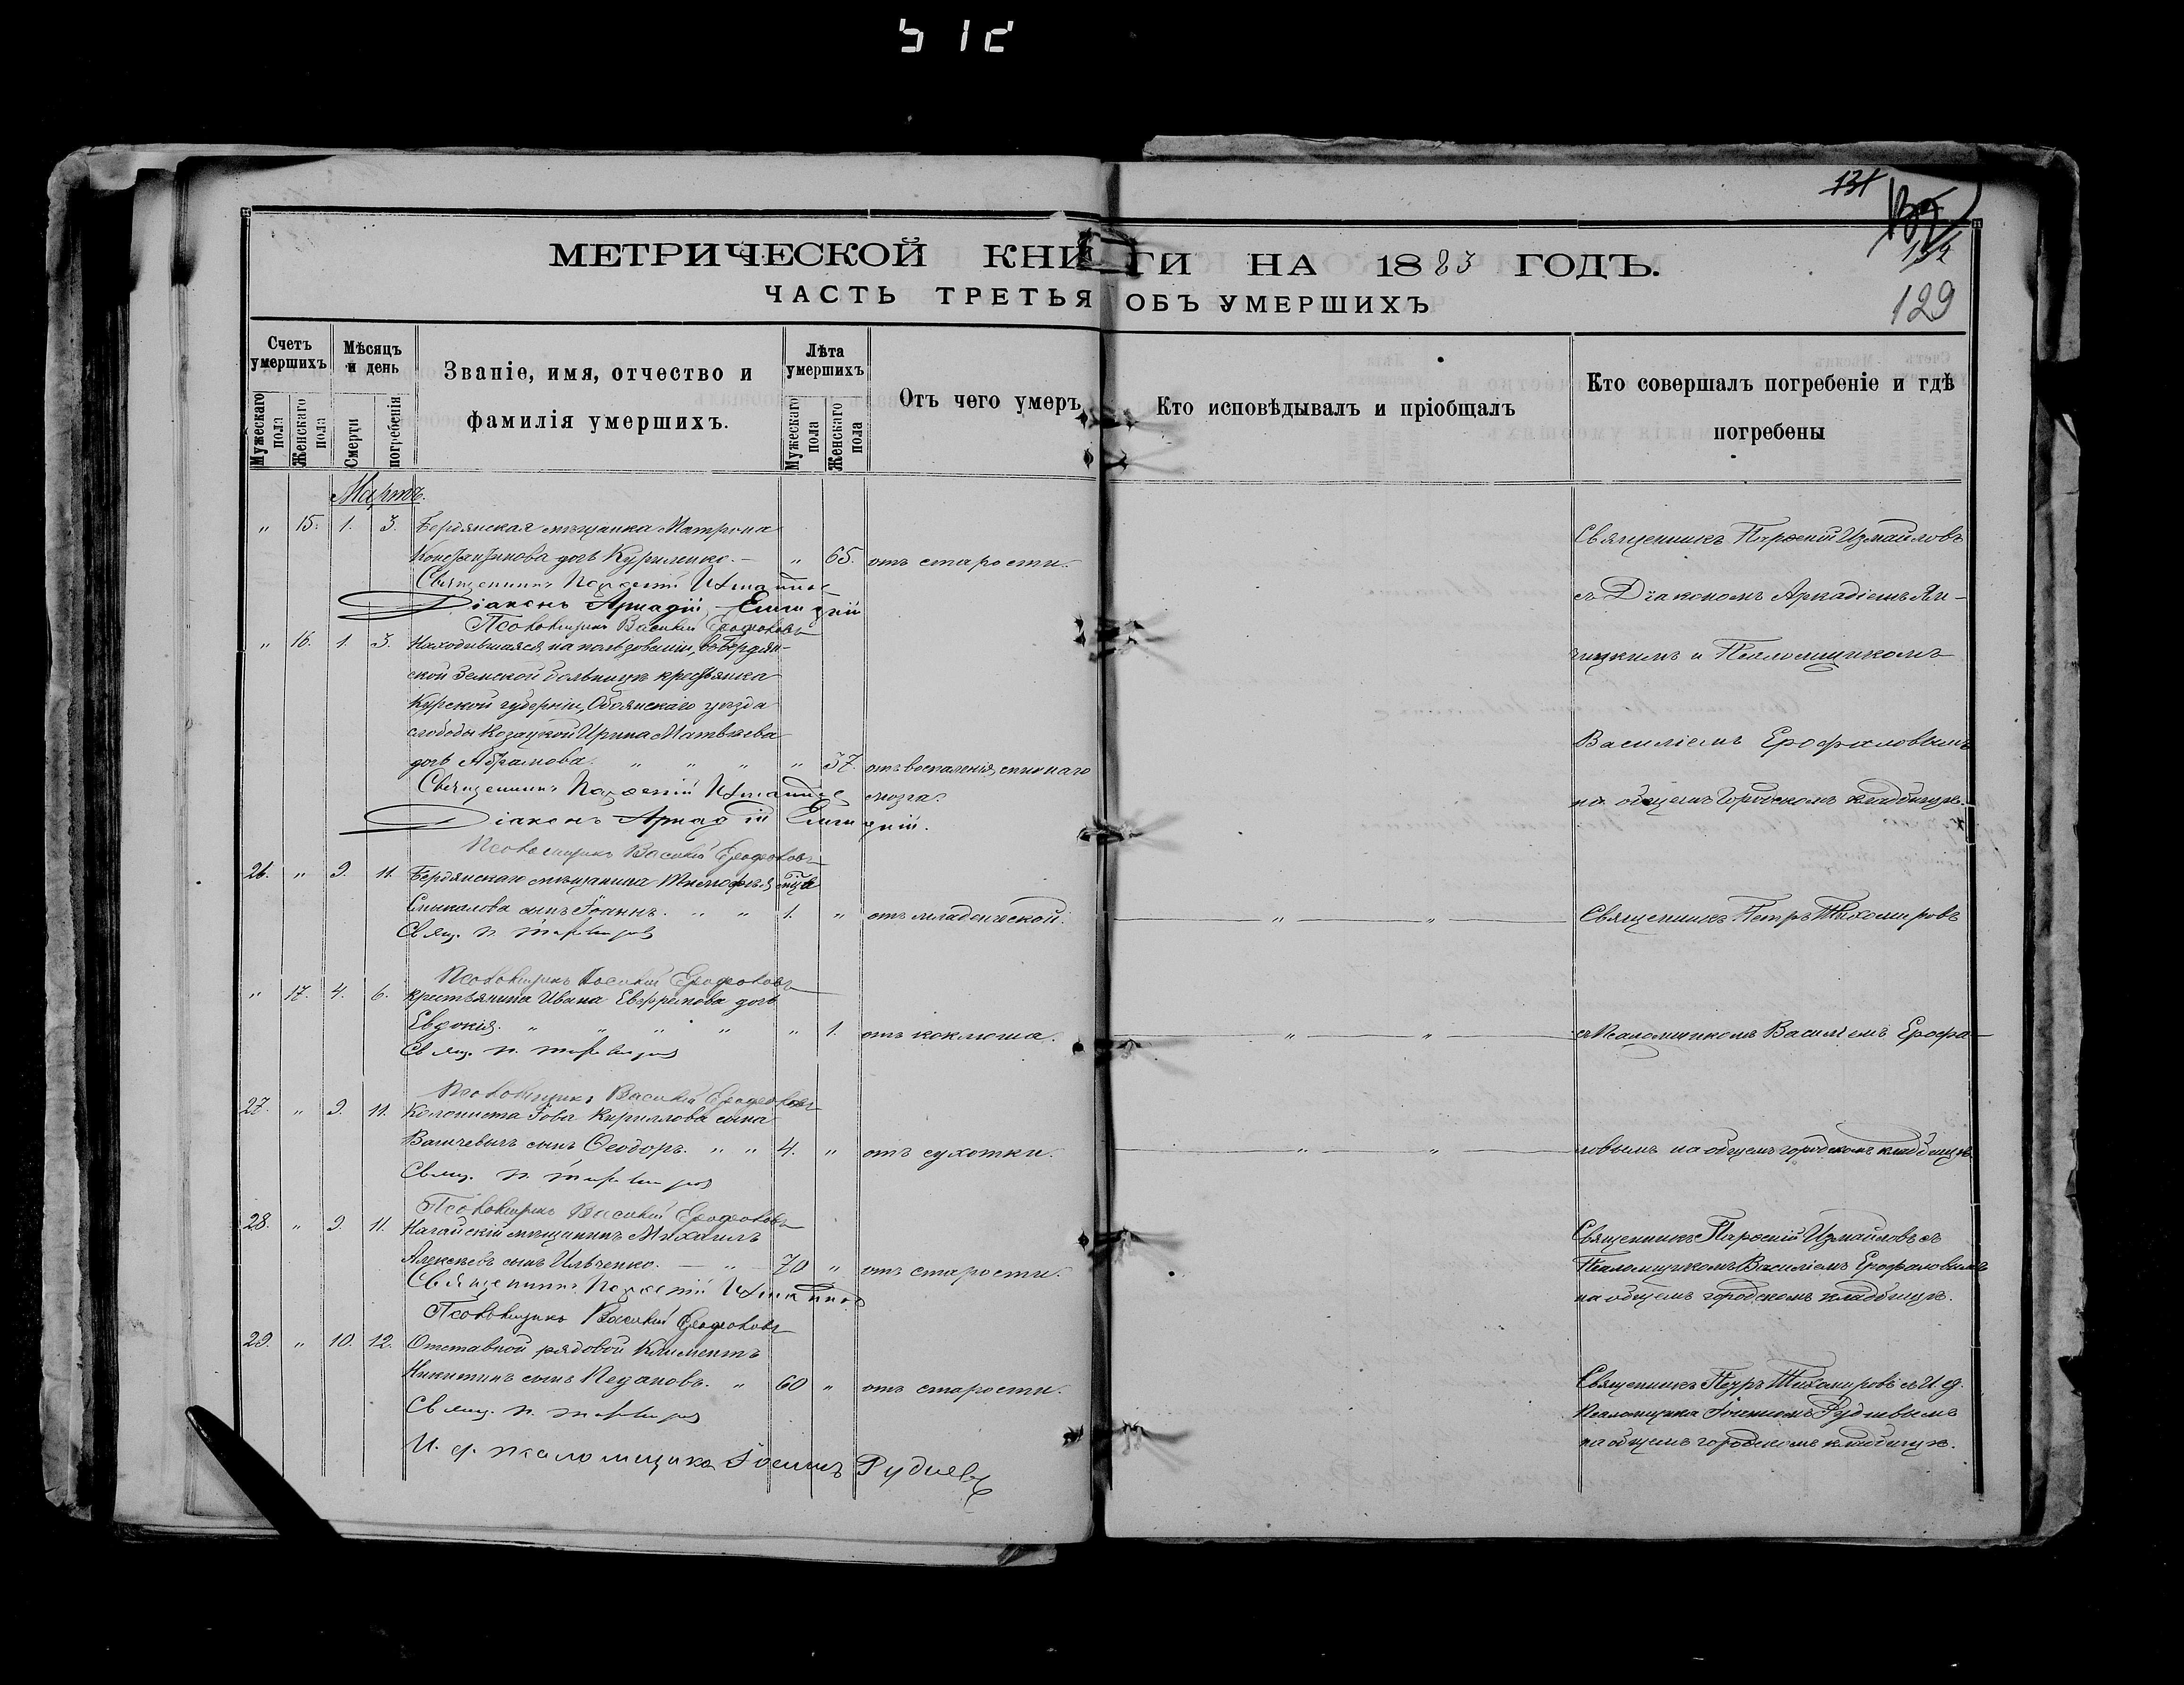 512
131
132
129
МЕТРИЧЕСКОЙ КНИГИ НА 1883 ГОДЪ.
ЧАСТЬ ТРЕТЬЯ ОБЪ УМЕРШИХЪ
Счетъ умершихъ
Мужескаго пола
Женскаго пола
Мѣсяцъ и день
Смерти
погребенія
Званіе, имя, отчество и
фамилія умершихъ.
Лѣта умершихъ
Мужескаго пола
Женскаго пола
Отъ чего умеръ
Кто исповѣдывалъ и пріобщалъ
Кто совершалъ погребеніе и гдѣ
погребены
Мартъ.
" 15. 1. 3. Бердянская мѣщанка Матрона
Константинова дочь Куриленко. — " 65. отъ старости.
Священникъ Парѳеній Измайловъ
Діаконъ Аркадій
Псаломщикъ Василій Ерофаловъ
" 16. 1. 3. Находившаяся на пользованіи, въ Бердян-
ской Земской больницѣ крестьянка
Курской губерніи, Обоянскаго уѣзда
слободы Козацкой Ирина Матвѣева
дочь Абрамова. " " " " 37. отъ воспаленія спиннаго
мозга.
Священникъ Парѳеній Измайловъ
Діаконъ Аркадій
Псаломщикъ Василій Ерофаловъ
26. " 9. 11. Бердянскаго мѣщанина Тимофея
сынъ Іоаннъ. " " 1. " отъ младенческой. " "
Свящ. П. Тихомировъ
Псаломщикъ Василій Ерофаловъ
" 17. 4. 6. крестьянина Ивана Евфремова дочь
Евдокія. " " " " " 1. отъ коклюша. " "
Свящ. П. Тихомировъ
Псаломщикъ Василій Ерофаловъ
27. " 9. 11. Колониста Іова Кириллова сына
сынъ Ѳеодоръ. " " 4. " отъ сухотки. " "
Свящ. П. Тихомировъ
Псаломщикъ Василій Ерофаловъ
28. " 9. 11. Нагайскій мѣщанинъ Михаилъ
Алексѣевъ сынъ Ильченко. — " — 70 " отъ старости.
Священникъ Парѳеній Измайловъ
Псаломщикъ Василій Ерофаловъ
29. " 10. 12. Отставной рядовой Климентъ
Никитинъ сынъ Педановъ. " 60 " отъ старости.
Свящ. П. Тихомировъ
И. д. псаломщика Іоаннъ Рудневъ
Священникъ Парѳеній Измайловъ
съ Діакономъ Аркадіемъ
и Псаломщикомъ
Василіемъ Ерофаловымъ
на общемъ городскомъ кладбищѣ.
Священникъ Петръ Тихомировъ
съ Псаломщикомъ Василіемъ Ерофа-
ловымъ на общемъ городскомъ кладбищѣ
Священникъ Парѳеній Измайловъ съ
Псаломщикомъ Василіемъ Ерофаловымъ
на общемъ городскомъ кладбищѣ.
Священникъ Петръ Тихомировъ съ И. д.
Псаломщика Іоанномъ Рудневымъ
на общемъ городскомъ кладбищѣ.